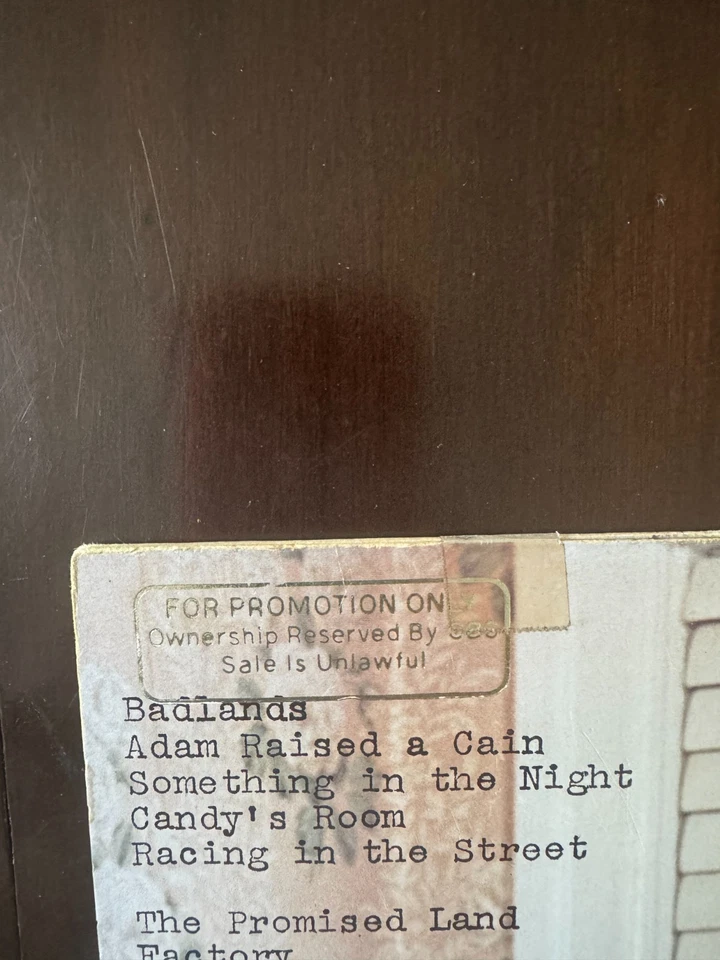 FOR PROMOTION ON
Ownership Reserved By CBS
Sale Is Unlawful
Badlands
Adam Raised a Cain
Something in the Night
Candy's Room
Racing in the Street
The Promised Land
Factory